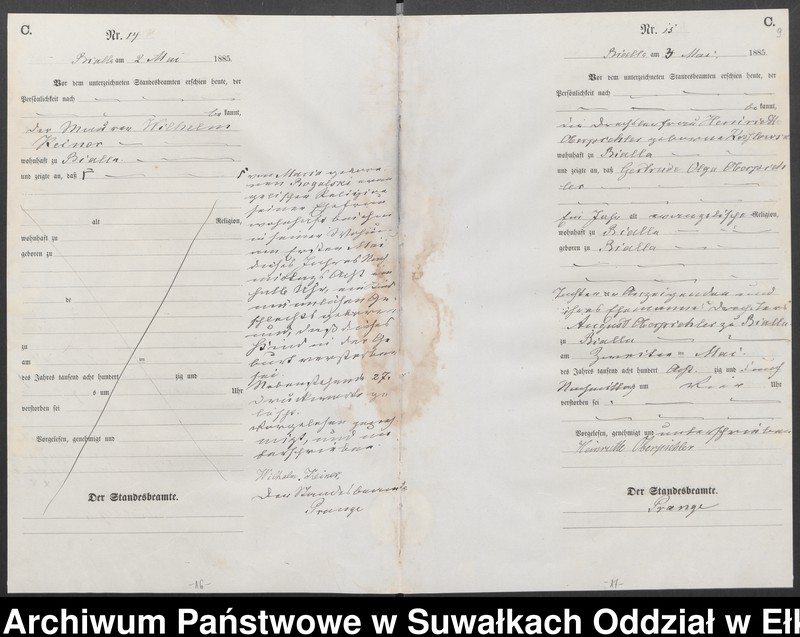 C.
Nr. 14
Bialla am 2 Mai 1885.
Vor dem unterzeichneten Standesbeamten erschien heute, der
Persönlichkeit nach
bekannt,
der Maurer Wilhelm
Keiner
wohnhaft zu Bialla
und zeigte an, daß
von Maria gebore-
nen Rogalski evan-
gelischer Religion
seiner Ehefrau
wohnhaft bei ihm
in seiner Wohnung
am ersten Mai
dieses Jahres Nach
mittags Acht ein
halb Uhr, ein Kind
männlichen Ge-
schlechts geboren
und, daß dieses
Kind in der Ge-
burt verstorben
sei.
Nebenstehende 27
Druckworte ge-
löscht.
Vorgelesen geneh
migt, und un
terschrieben.
Wilhelm Keiner
Der Standesbeamte
Prange
alt Religion,
wohnhaft zu
geboren zu
de
zu
am ten
des Jahres tausend acht hundert zig und
s um Uhr
verstorben sei
Vorgelesen, genehmigt und
Der Standesbeamte.
-16-
C.
9
Nr. 15
Bialla am 3 Mai 1885.
Vor dem unterzeichneten Standesbeamten erschien heute, der
Persönlichkeit nach
bekannt,
die Drechslerfrau Henriette
geborene
wohnhaft zu Bialla
und zeigte an, daß Gertrude Olga
Ein Jahr alt evangelischer Religion,
wohnhaft zu Bialla
geboren zu Bialla
Tochter der Anzeigenden und
ihres Ehemannes Drechslers
August zu Bialla
zu Bialla
am Zweiten Mai
des Jahres tausend acht hundert Acht zig und fünf
Nachmittag um Vier Uhr
verstorben sei
Vorgelesen, genehmigt und unterschrieben
Henriette
Der Standesbeamte.
Prange
-17-
Archiwum Państwowe w Suwałkach Oddział w Ełk